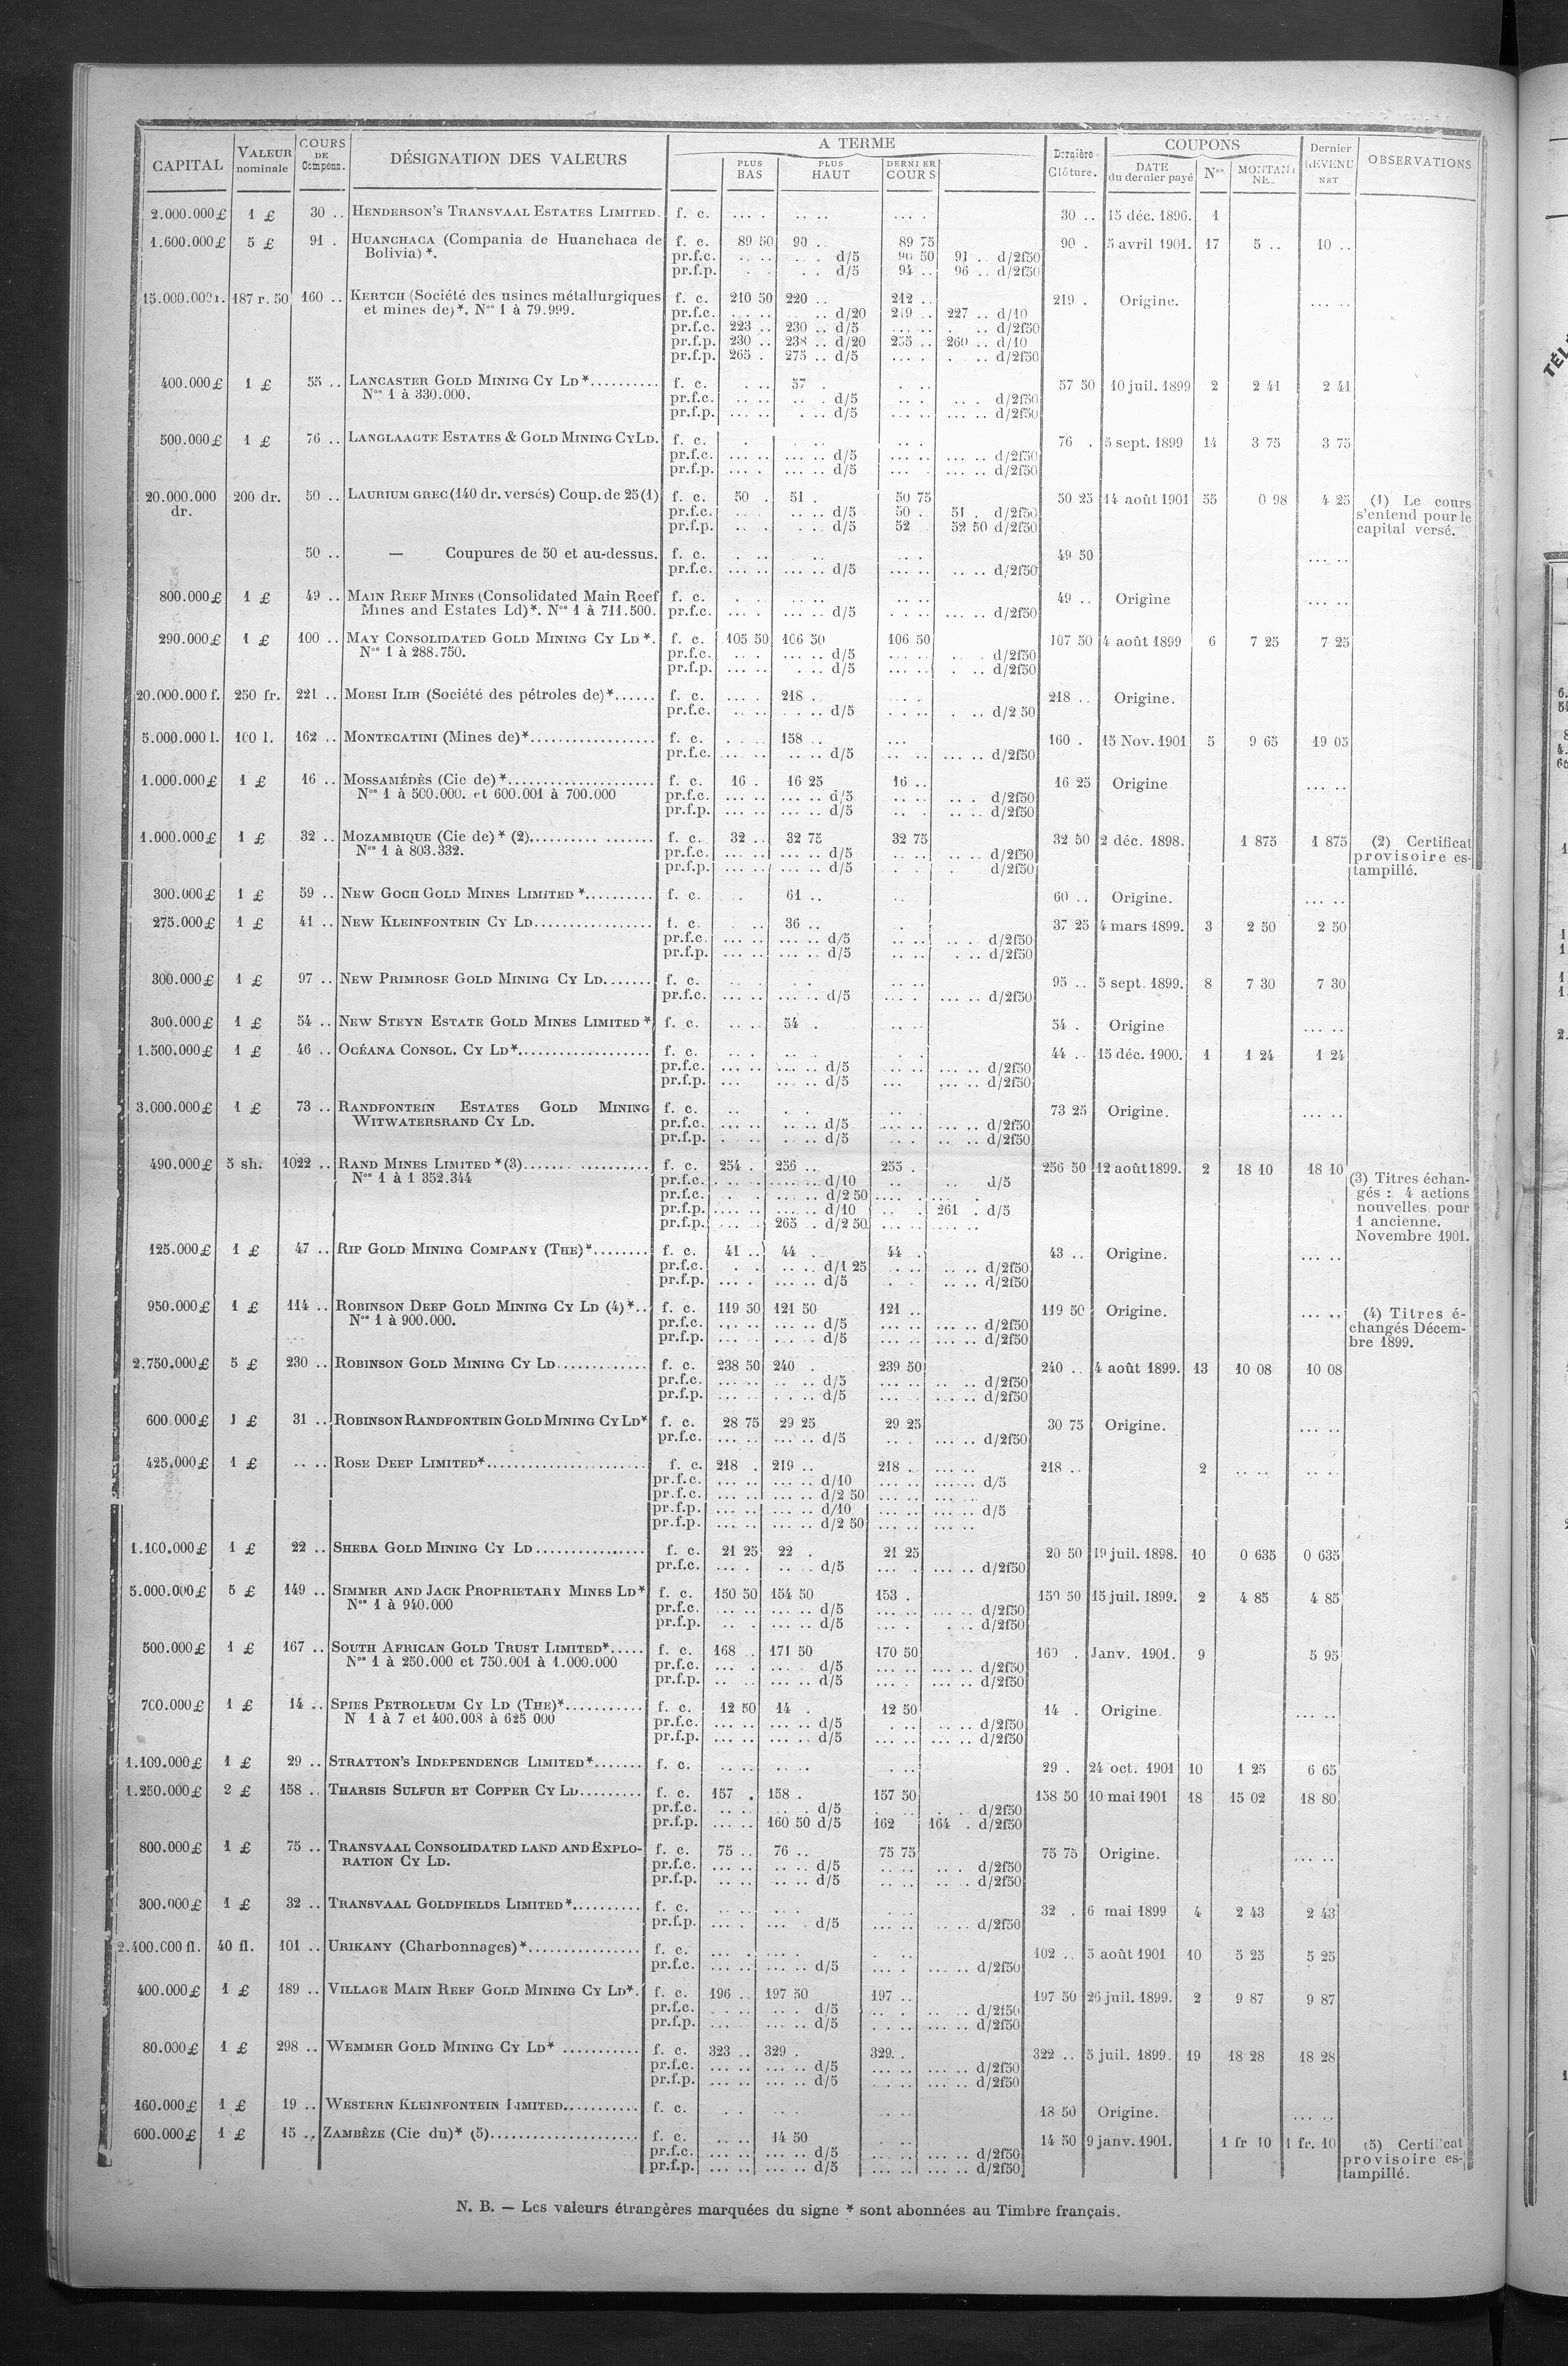 CAPITAL VALEUR nominale COURS DE Compens. DÉSIGNATION DES VALEURS A TERME PLUS BAS PLUS HAUT DERNIER COURS Dernière Clôture. COUPONS DATE du dernier payé Nos MONTANT Dernier REVENU NET OBSERVATIONS
2.000.000£ 1 £ 30 .. HENDERSON'S TRANSVAAL ESTATES LIMITED. f. c. 30 .. 15 déc. 1896. 1
1.600.000£ 5 £ 91 . HUANCHACA (Compania de Huanchaca de f. c. 89 50 90 .. 89 75 90 . 5 avril 1901. 17 5 .. 10 ..
Bolivia)*. pr.f.c. d/5 90 50 91 . d/2f50
pr.f.p. d/5 94 .. 96 .. d/2f50
15.000.000r. 187 r. 50 160 .. KERTCH (Société des usines métallurgiques f. c. 210 50 220 .. 212 .. 219 . Origine. ... ..
et mines de)*. Nos 1 à 79.999. pr.f.c. d/20 219 .. 227 .. d/10
pr.f.c. 223 .. 230 .. d/5 d/2f50
pr.f.p. 230 .. 238 .. d/20 255 .. 260 .. d/10
pr.f.p. 265 . 275 .. d/5 d/2f50
400.000£ 1 £ 55 .. LANCASTER GOLD MINING CY LD*.......... f. c. 57 . 57 50 10 juil. 1899 2 2 41 2 41
Nos 1 à 330.000. pr.f.c. d/5 d/2f50
pr.f.p. d/5 d/2f50
500.000£ 1 £ 76 .. LANGLAAGTE ESTATES & GOLD MINING CY LD. f. c. 76 . 5 sept. 1899 14 3 75 3 75
pr.f.c. d/5 d/2f50
pr.f.p. d/5 d/2f50
20.000.000 200 dr. 50 .. LAURIUM GREC (140 dr. versés) Coup. de 25(1) f. c. 50 . 51 . 50 75 50 25 14 août 1901 55 0 98 4 25 (1) Le cours
dr. pr.f.c. d/5 50 . 51 . d/2f50 s'entend pour le
pr.f.p. d/5 52 52 50 d/2f50 capital versé.
50 .. — Coupures de 50 et au-dessus. f. c. 49 50 ... ..
pr.f.c. d/5 d/2f50
800.000£ 1 £ 49 .. MAIN REEF MINES (Consolidated Main Reef f. c. 49 .. Origine ... ..
Mines and Estates Ld)*. Nos 1 à 711.500. pr.f.c. d/5 d/2f50
290.000£ 1 £ 100 .. MAY CONSOLIDATED GOLD MINING CY LD *. f. c. 105 50 106 50 106 50 107 50 4 août 1899 6 7 25 7 25
Nos 1 à 288.750. pr.f.c. d/5 d/2f50
pr.f.p. d/5 d/2f50
20.000.000 f. 250 fr. 221 .. MOESI ILIR (Société des pétroles de)*...... f. c. 218 . 218 .. Origine.
pr.f.c. d/5 d/2 50
5.000.000 l. 100 l. 162 .. MONTECATINI (Mines de)*................. f. c. 158 .. 160 . 15 Nov. 1901 5 9 65 19 05
pr.f.c. d/5 d/2f50
1.000.000£ 1 £ 16 .. MOSSAMÉDÈS (Cie de)*.................... f. c. 16 . 16 25 16 .. 16 25 Origine ... ..
Nos 1 à 500.000. et 600.001 à 700.000 pr.f.c. d/5 d/2f50
pr.f.p. d/5 d/2f50
1.000.000£ 1 £ 32 .. MOZAMBIQUE (Cie de) * (2)................ f. c. 32 .. 32 75 32 75 32 50 2 déc. 1898. 1 875 1 875 (2) Certificat
Nos 1 à 803.332. pr.f.c. d/5 d/2f50 provisoire es-
pr.f.p. d/5 d/2f50 tampillé.
300.000£ 1 £ 59 .. NEW GOCH GOLD MINES LIMITED *.......... f. c. 61 .. 60 .. Origine. ... ..
275.000£ 1 £ 41 .. NEW KLEINFONTEIN CY LD................. f. c. 36 .. 37 25 4 mars 1899. 3 2 50 2 50
pr.f.c. d/5 d/2f50
pr.f.p. d/5 d/2f50
300.000£ 1 £ 97 .. NEW PRIMROSE GOLD MINING CY LD....... f. c. 95 .. 5 sept. 1899. 8 7 30 7 30
pr.f.c. d/5 d/2f50
300.000£ 1 £ 54 .. NEW STEYN ESTATE GOLD MINES LIMITED * f. c. 54 . 54 . Origine ... ..
1.500.000£ 1 £ 46 .. OCÉANA CONSOL. CY LD*................... f. c. 44 .. 15 déc. 1900. 1 1 24 1 24
pr.f.c. d/5 d/2f50
pr.f.p. d/5 d/2f50
3.000.000£ 1 £ 73 .. RANDFONTEIN ESTATES GOLD MINING f. c. 73 25 Origine. ... ..
WITWATERSRAND CY LD. pr.f.c. d/5 d/2f50
pr.f.p. d/5 d/2f50
490.000£ 5 sh. 1022 .. RAND MINES LIMITED *(3)................. f. c. 254 . 256 .. 255 . 256 50 12 août 1899. 2 18 10 18 10
Nos 1 à 1 352.344 pr.f.c. d/10 d/5 (3) Titres échan-
pr.f.c. d/2 50 gés : 4 actions
pr.f.p. d/10 261 . d/5 nouvelles pour
pr.f.p. 265 .. d/2 50 1 ancienne.
Novembre 1901.
125.000£ 1 £ 47 .. RIP GOLD MINING COMPANY (THE)*........ f. c. 41 .. 44 . 44 . 43 .. Origine. ... ..
pr.f.c. d/1 25 d/2f50
pr.f.p. d/5 d/2f50
950.000£ 1 £ 114 .. ROBINSON DEEP GOLD MINING CY LD (4)*.. f. c. 119 50 121 50 121 .. 119 50 Origine. ... .. (4) Titres é-
Nos 1 à 900.000. pr.f.c. d/5 d/2f50 changés Décem-
pr.f.p. d/5 d/2f50 bre 1899.
2.750.000£ 5 £ 230 .. ROBINSON GOLD MINING CY LD............. f. c. 238 50 240 . 239 50 240 .. 4 août 1899. 13 10 08 10 08
pr.f.c. d/5 d/2f50
pr.f.p. d/5 d/2f50
600.000£ 1 £ 31 .. ROBINSON RANDFONTEIN GOLD MINING CY LD* f. c. 28 75 29 25 29 25 30 75 Origine. ... ..
pr.f.c. d/5 d/2f50
425.000£ 1 £ .. .. ROSE DEEP LIMITED*....................... f. c. 218 . 219 .. 218 .. 218 .. 2
pr.f.c. d/10 d/5
pr.f.c. d/2 50
pr.f.p. d/10 d/5
pr.f.p. d/2 50
1.100.000£ 1 £ 22 .. SHEBA GOLD MINING CY LD................ f. c. 21 25 22 . 21 25 20 50 19 juil. 1898. 10 0 635 0 635
pr.f.c. d/5 d/2f50
5.000.000£ 5 £ 149 .. SIMMER AND JACK PROPRIETARY MINES LD* f. c. 150 50 154 50 153 . 150 50 15 juil. 1899. 2 4 85 4 85
Nos 1 à 940.000 pr.f.c. d/5 d/2f50
pr.f.p. d/5 d/2f50
500.000£ 1 £ 167 .. SOUTH AFRICAN GOLD TRUST LIMITED*..... f. c. 168 .. 171 50 170 50 169 . Janv. 1901. 9 5 95
Nos 1 à 250.000 et 750.001 à 1.000.000 pr.f.c. d/5 d/2f50
pr.f.p. d/5 d/2f50
700.000£ 1 £ 14 .. SPIES PETROLEUM CY LD (THE)*........... f. c. 12 50 14 . 12 50 14 . Origine. ... ..
N 1 à 7 et 400.008 à 625 000 pr.f.c. d/5 d/2f50
pr.f.p. d/5 d/2f50
1.100.000£ 1 £ 29 .. STRATTON'S INDEPENDENCE LIMITED*....... f. c. 29 . 24 oct. 1901 10 1 25 6 65
1.250.000£ 2 £ 158 .. THARSIS SULFUR ET COPPER CY LD......... f. c. 157 . 158 . 157 50 158 50 10 mai 1901 18 15 02 18 80
pr.f.c. d/5 d/2f50
pr.f.p. 160 50 d/5 162 164 . d/2f50
800.000£ 1 £ 75 .. TRANSVAAL CONSOLIDATED LAND AND EXPLO- f. c. 75 .. 76 .. 75 75 75 75 Origine. ... ..
RATION CY LD. pr.f.c. d/5 d/2f50
pr.f.p. d/5 d/2f50
300.000£ 1 £ 32 .. TRANSVAAL GOLDFIELDS LIMITED*.......... f. c. 32 . 6 mai 1899 4 2 43 2 43
pr.f.p. d/5 d/2f50
2.400.000 fl. 40 fl. 101 .. URIKANY (Charbonnages)*................ f. c. 102 .. 5 août 1901 10 5 25 5 25
pr.f.c. d/5 d/2f50
400.000£ 1 £ 189 .. VILLAGE MAIN REEF GOLD MINING CY LD*. f. c. 196 .. 197 50 197 .. 197 50 26 juil. 1899. 2 9 87 9 87
pr.f.c. d/5 d/2f50
pr.f.p. d/5 d/2f50
80.000£ 1 £ 298 .. WEMMER GOLD MINING CY LD* ........... f. c. 323 .. 329 . 329. . 322 .. 5 juil. 1899. 19 18 28 18 28
pr.f.c. d/5 d/2f50
pr.f.p. d/5 d/2f50
160.000£ 1 £ 19 .. WESTERN KLEINFONTEIN LIMITED........... f. c. 18 50 Origine. ... ..
600.000£ 1 £ 15 .. ZAMBÈZE (Cie du)* (5).................... f. c. 14 50 14 50 9 janv. 1901. 1 fr 10 1 fr. 10 (5) Certificat
pr.f.c. d/5 d/2f50 provisoire es-
pr.f.p. d/5 d/2f50 tampillé.
N. B. — Les valeurs étrangères marquées du signe * sont abonnées au Timbre français.